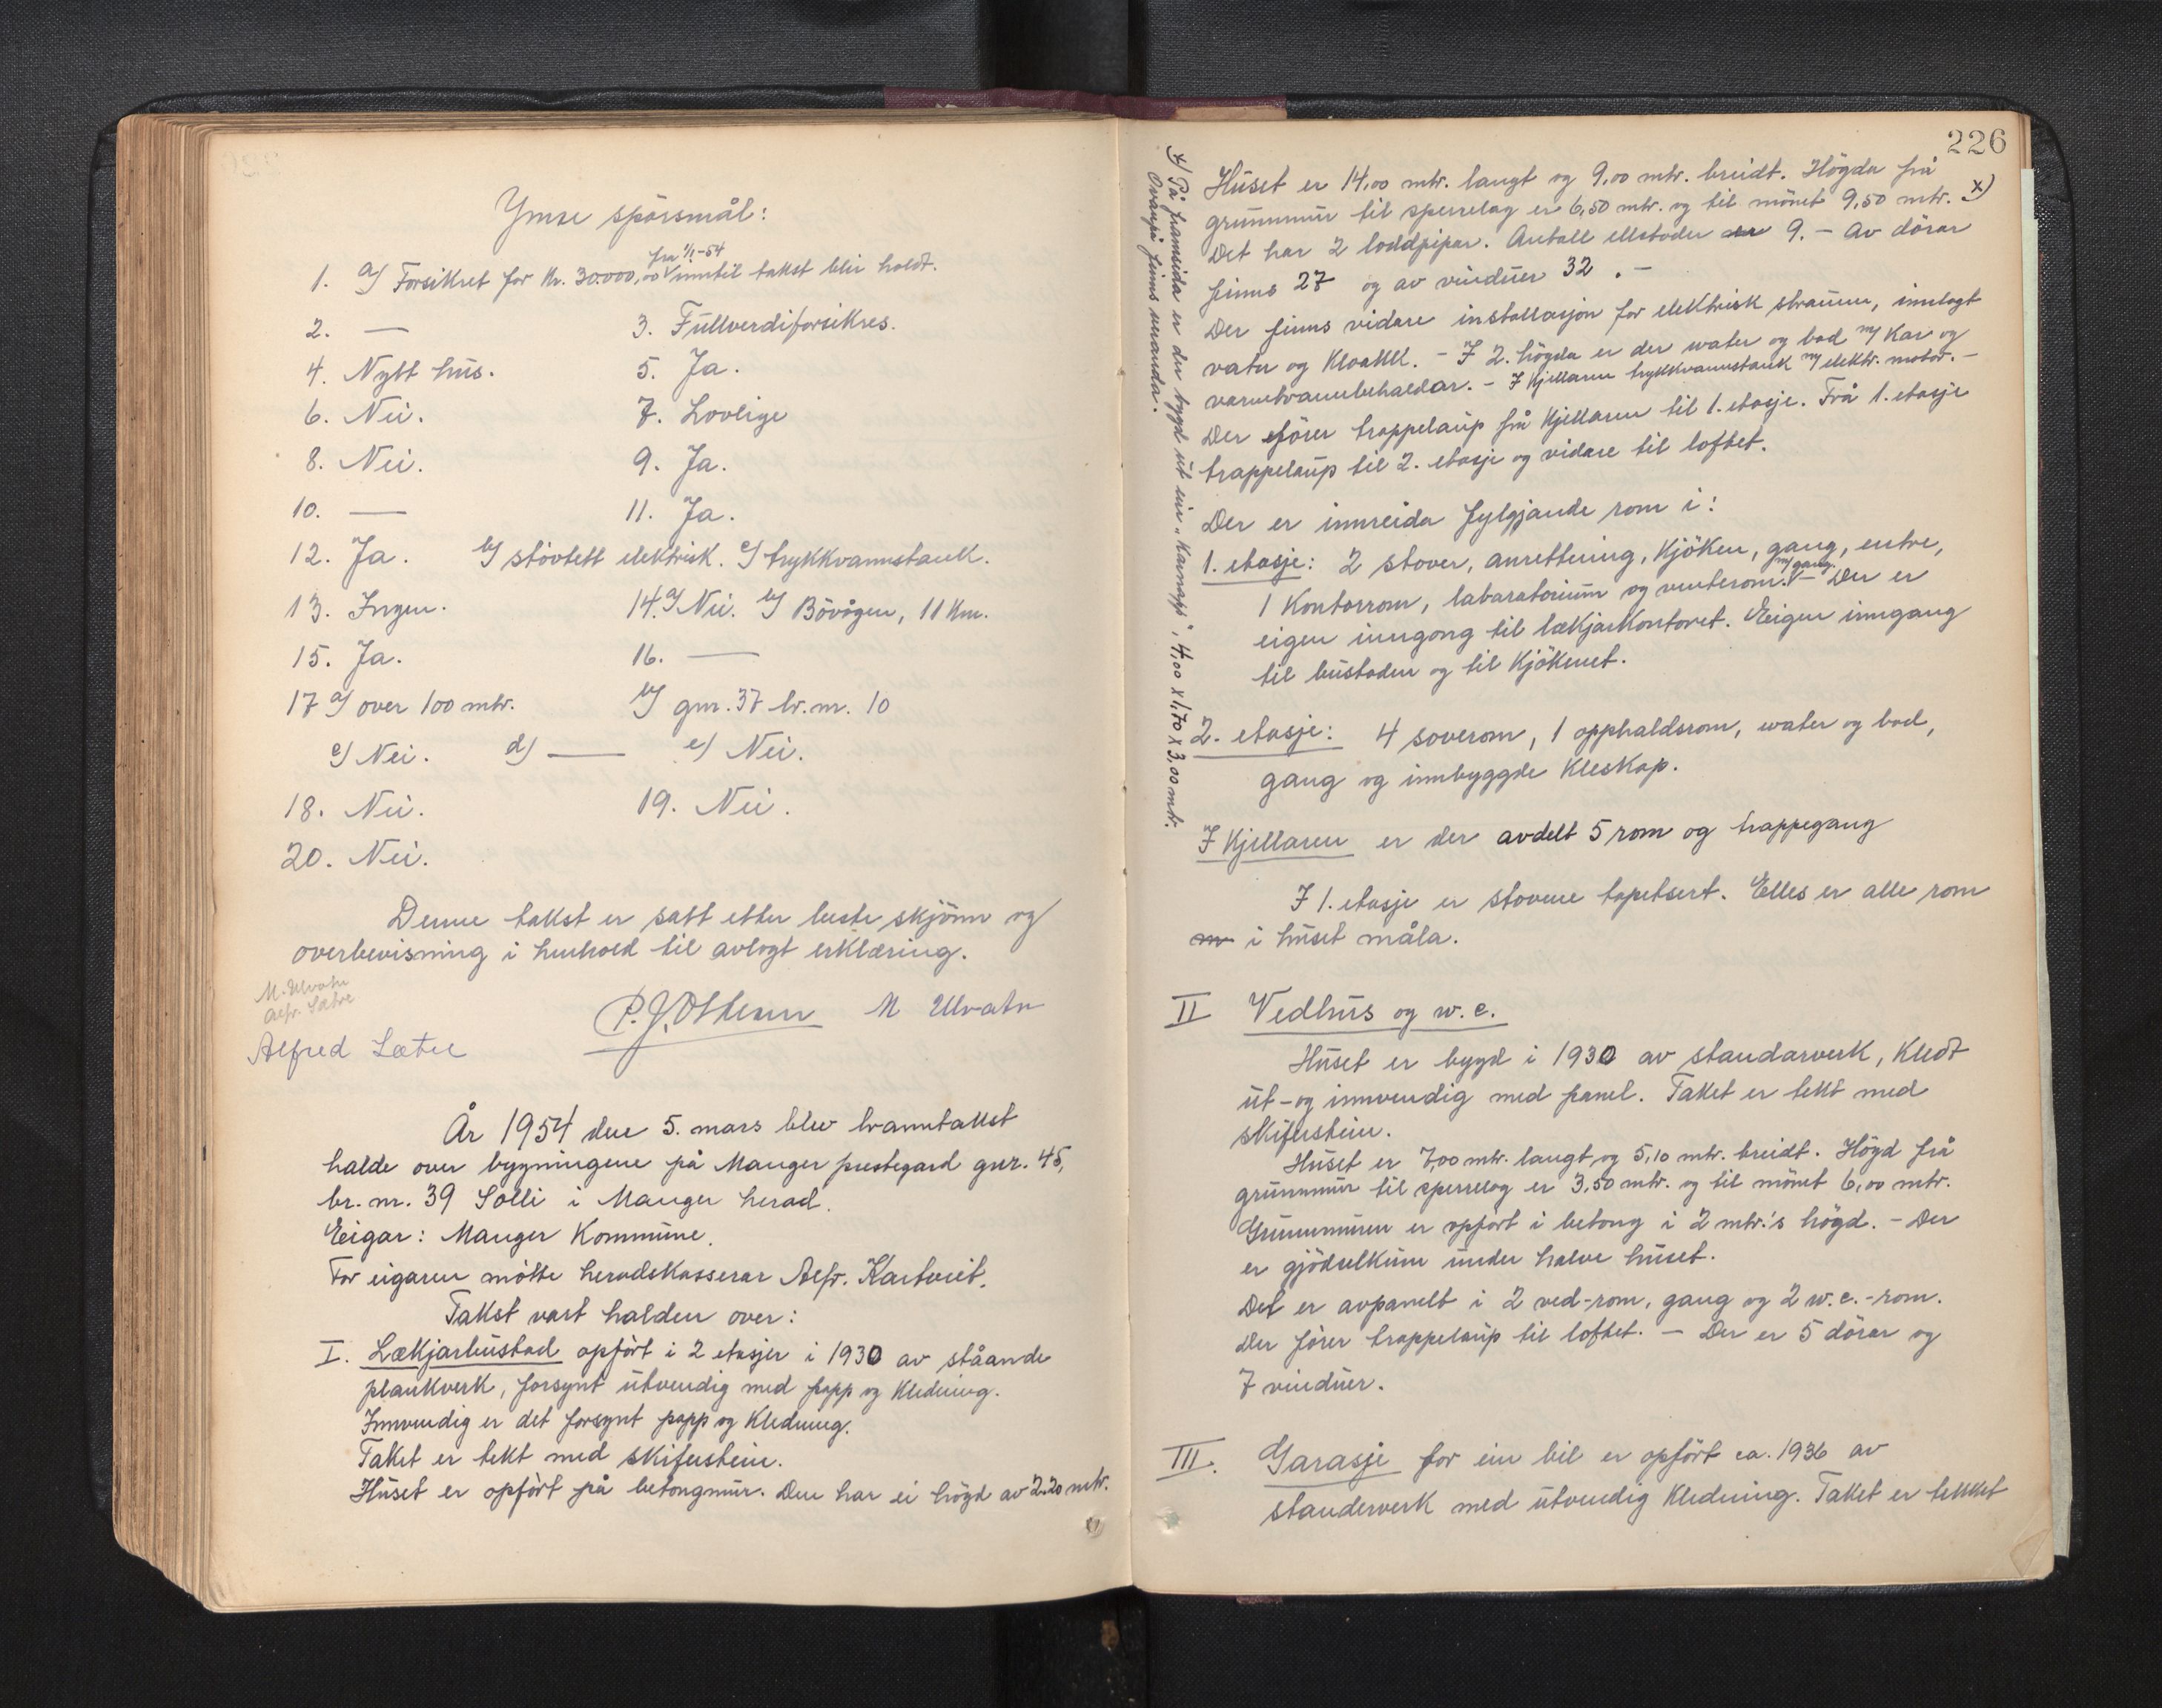 Ymse spörsmål:
1. a) Forsikret for Kr. 30.000,00 fra 1/1-54 inntil takst blir holdt.
2. — 3. Fullverdiforsikres.
4. Nytt hus. 5. Ja.
6. Nei. 7. Lovlige
8. Nei. 9. Ja.
10. — 11. Ja.
12. Ja. b) stövtett elektrisk. c) trykkvannstank.
13. Ingen. 14. a) Nei. b) Bövågen, 11 Km.
15. Ja. 16. —
17 a) over 100 mtr. b) gnr. 37 br.nr. 10
c) Nei. d) — e) Nei.
18. Nei. 19. Nei.
20. Nei.
Denne takst er satt etter beste skjönn og
overbevisning i henhold til avlagt erklæring.
M. Ulvatn
Alfr. Sætre
P.J. Othem M Ulvatn
Alfred Sætre
År 1954 den 5. mars blev branntakst
halde over bygningene på Manger prestegard gnr. 45,
br. nr. 39 Solli i Manger herad.
Eigar: Manger Kommune.
For eigaren mötte heradskasserar Alfr. Kartveit.
Takst vart halden over:
I. Lækjarbustad opfört i 2 etasjer i 1930 av ståande
plankverk, forsynt utvendig med papp og Kledning.
Innvendig er det forsynt papp og Kledning.
Taket er tekt med skiferstein.
Huset er opfört på betongmur. Den har ei högd av 2.20 mtr.
226
Huset er 14,00 mtr. langt og 9,00 mtr. breidt. Högda frå
grunnmur til sperrelag er 6,50 mtr. og til mönet 9,50 mtr. x)
Det har 2 loddpipar. Antall ellstader er 9. – Av dörar
finns 27 og av vinduer 32. –
Der finns vidare installasjon for elektrisk straum, innlagt
vatn og Kloakk. – I 2. högda er der water og bad m/ Kar og
varmtvannbehaldar. – I Kjellaren trykkvannstank m/ elektr. motor. –
Der förer trappelaup frå Kjellaren til 1. etasje. Frå 1. etasje
trappelaup til 2. etasje og vidare til loftet.
Der er innreida fylgjande rom i:
1. etasje: 2 stover, anrettning, Kjöken, gang, entre,
1 Kontorrom, labaratorium og venterom m/ gang. – Der er
eigen inngong til lækjarkontoret. Eigen inngang
til bustaden og til Kjökenet.
2. etasje: 4 soverom, 1 opphaldsrom, water og bad,
gang og innbyggde Kleskap.
I Kjellaren er der avdelt 5 rom og trappegang
I 1. etasje er stovene tapetsert. Elles er alle rom
i huset måla.
II Vedhus og w.c.
Huset er bygd i 1930 av standarverk, Kledt
ut- og innvendig med panel. Taket er tekt med
skiferstein.
Huset er 7,00 mtr. langt og 5,10 mtr. breidt. Högd frå
grunnmur til sperrelag er 3,50 mtr. og til mönet 6,00 mtr.
Grunnmuren er opfört i betong i 2 mtr.'s högd. – Der
er gjödselkum under halve huset.
Det er avpanelt i 2 ved-rom, gang og 2 w.c.-rom.
Der förer trappelaup til loftet. – Der er 5 dörar og
7 vinduer.
III. Garasje for ein bil er opfört ca. 1936 av
standerverk med utvendig Kledning. Taket er tekket
x) På framsida er der bygd ut ein „Karnapp", 4,00 x 1,70 x 3,00 mtr.
Ovanpå finns veranda.